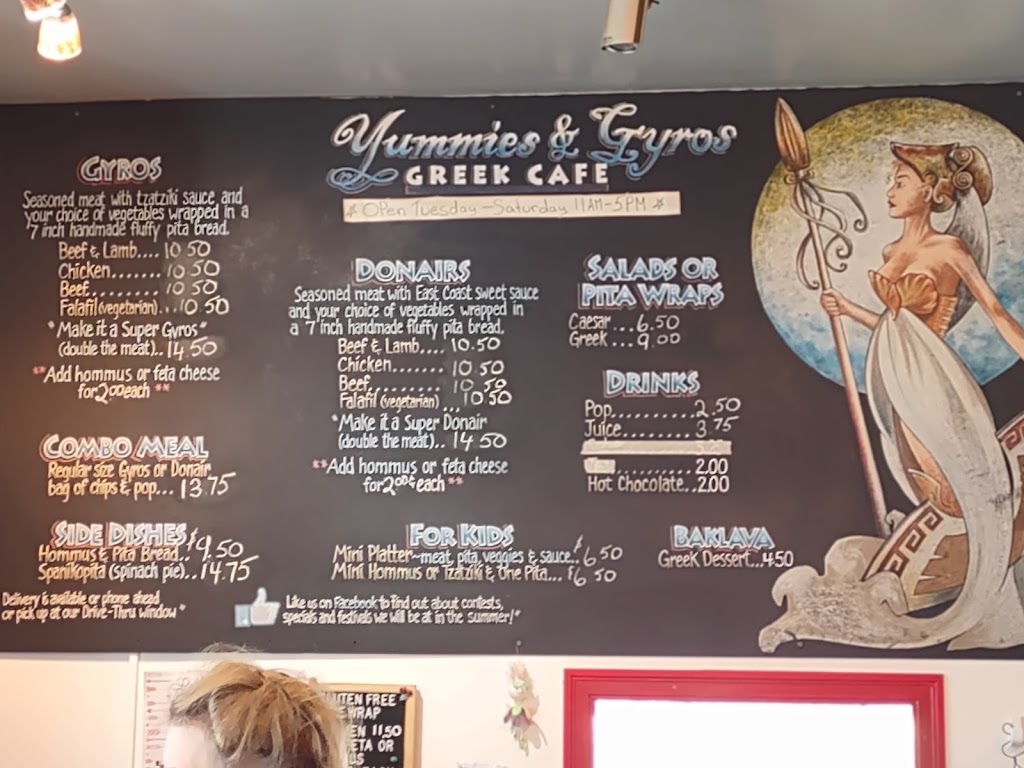 Yummies & Gyros
GREEK CAFE
* Open Tuesday - Saturday 11AM-5PM *
GYROS
Seasoned meat with tzatziki sauce, and
your choice of vegetables wrapped in a
7 inch handmade fluffy pita bread.
Beef & Lamb.... 10 50
Chicken....... 10 50
Beef......... 10 50
Falafil (vegetarian)... 10 50
"Make it a Super Gyros"
(double the meat).. 14.50
**Add hommus or feta cheese
for 2.00 each **
COMBO MEAL
Regular size Gyros or Donair,
bag of chips & pop... 13.75
SIDE DISHES
Hommus & Pita Bread...$9.50
Spanikopita (spinach pie)...14.75
Delivery is available or phone ahead
or pick up at our Drive-Thru window*
DONAIRS
Seasoned meat with East Coast sweet sauce
and your choice of vegetables wrapped in
a 7 inch handmade fluffy pita bread.
Beef & Lamb.... 10.50
Chicken....... 10 50
Beef......... 10 50
Falafil (vegetarian) ... 10 50
"Make it a Super Donair
(double the meat).. 14 50
**Add hommus or feta cheese
for 2.00 each **
FOR KIDS
Mini Platter~meat, pita, veggies & sauce..$6.50
Mini Hommus or Tzatziki & One Pita...$6 50
Like us on Facebook to find out about contests,
specials and festivals we will be at in the summer!*
SALADS OR
PITA WRAPS
Caesar...6.50
Greek...9.00
DRINKS
Pop..........2.50
Juice........3.75
..........2.00
Hot Chocolate..2.00
BAKLAVA
Greek Dessert...4.50
UTEN FREE
WRAP
EN 11.50
ETA OR